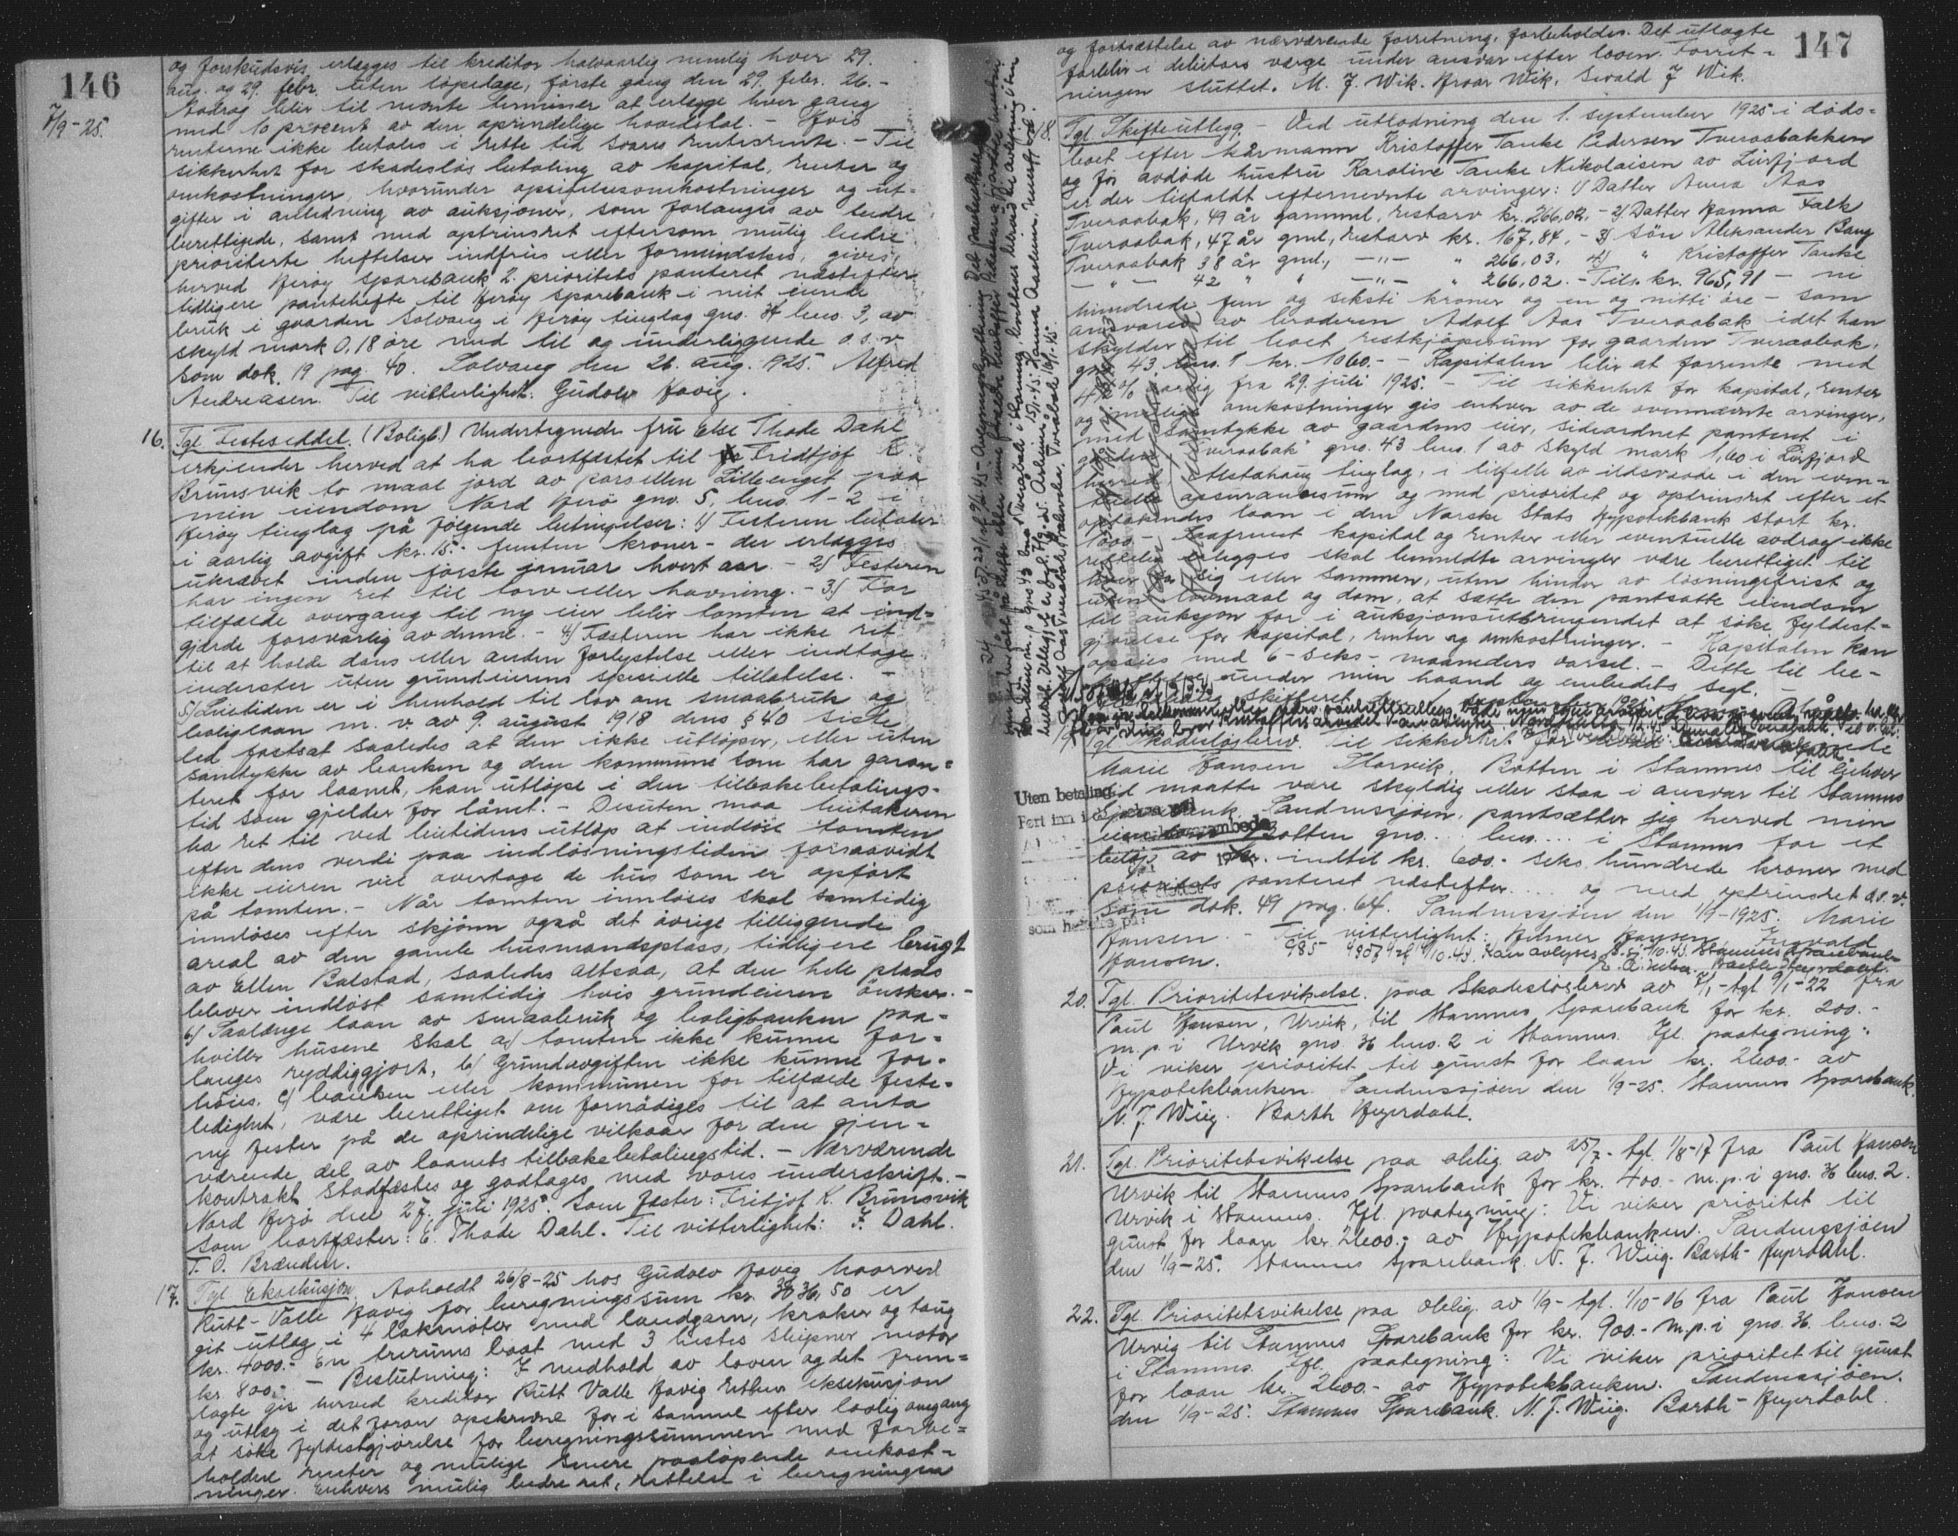 146
7/9-25.
og forskudsvis erlegges til kreditor halvaarlig nemlig hver 29.
aug. og 29. febr. uten løpedage, første gang den 29. febr. 26.-
Avdrag blir til nevnte terminer at erlegge hver gang
med 10 procent av den oprindelige hovedstol. - Hvis
renterne ikke betales i rette tid svares rentesrente. - Til
sikkerhet for skadesløs betaling av kapital, renter og
omkostninger, hvorunder opsigelsesomkostninger og ut-
gifter i anledning av auksjoner, som forlanges av bedre
berettigede, samt med optrinsret eftersom mulig bedre
prioriterte heftelser indfries eller formindskes, gives
herved Herøy Sparebank 2. prioritets panteret næstefter
tidligere pantehefte til Herøy Sparebank i mit eiende
bruk i gaarden Solvang i Herøy tinglag gno. 34 bno. 3, av
skyld mark 0,18 øre med til og underliggende o.s.v.
som dok. 19 pag. 40. Solvang den 26. aug. 1925. Alfred
Andreasen. Til vitterlighet: Gudolv Havig.
16. Tgl. Festeseddel. (Boligb.) Undertegnede fru Else Thode Dahl
erkjender herved at ha bortfæstet til Fridtjof K.
Brunsvik to maal jord av parsellen Lilleenget paa
min eiendom Nord Herø gno. 5, bno. 1-2 i
Herøy tinglag på følgende betingelser: 1) Festeren betaler
i aarlig avgift kr. 15.- femten kroner - der erlægges
ukrævet inden første januar hvert aar. - 2) Festeren
har ingen ret til torv eller havning. - 3) Før
tilfælde overgang til ny eier blir tomten at ind-
gjærde forsvarlig av denne. - 4) Fæsteren har ikke ret
til at holde dans eller anden forlystelse eller indtage
inderster uten grundeierens specielle tillatelse. -
5) Leietiden er i henhold til lov om smaabruk og
boliglaan m.v. av 9. august 1918 dens § 40 siste
led fastsat saaledes at den ikke utløper, eller uten
samtykke av banken og den kommune som har garan-
teret for laanet, kan utløpe i den tilbakebetalings-
tid som gjelder for lånet. - Desuten maa leietakeren
ha ret til ved leietidens utløp at indløse tomten
efter dens verdi paa indløsningstiden forsaavidt
ikke eieren vil overtage de hus som er opført
på tomten. - Når tomten innløses skal samtidig
innløses efter skjønn også det øvrige tilliggende
areal av den gamle husmandsplass, tidligere brugt
av Ellen Balstad, saaledes altsaa, at den hele plads
blever indløst samtidig hvis grundeieren ønsker. -
6) Saalænge laan av smaabruk og boligbanken paa-
hviler husene skal a) tomten ikke kunne for-
langes ryddiggjort, b) Grundavgiften ikke kunne for-
høies. c) banken eller kommunen for tilfælde feste-
ledighet, være berettiget om fornødiges til at anta
ny fester på de oprindelige vilkaar for den gjen-
værende del av laanets tilbakebetalingstid. - Nærværende
kontrakt stadfæstes og godtages med vores underskrift. -
Nord Herø den 27. juli 1925. Som fester: Fritjof K. Brunsvik
Som bortfæster: E. Thode Dahl. Til vitterlighet: F. Dahl.
T. O. Brænden.
17. Tgl. Eksekusjon. Avholdt 26/8-25 hos Gudolv Havig hvorved
Rutt-Valle Havig for beregningssum kr. 3636,50 er
git utlæg i 4 laksnøter med landgarn, kroker og taug
kr. 4000.- En trerums baat med 3 hestes Sleipner motor
kr. 800.- - Beslutning: I medhold av loven og det frem-
lagte gis herved kreditor Rutt Valle Havig rethen eksekusjon
og utlæg i det foran opskrevne for i samme efter lovlig omgang
at søke fyldestgjørelse for beregningssummen med forbe-
holdne renter og mulige senere paaløpende omkost-
ninger. Enhvers mulig bedre ret, rettelse i beregningen
147
og fortsættelse av nærværende forretning, forbeholdes. Det utlagte
forblir i debitors værge under ansvar efter loven. Forret-
ningen sluttet. M. J. Wik. Hroar Wik. Sivald J Wik.
18. Tgl. Skifteutlegg. - Ved utlodning den 1. september 1925 i døds-
boet efter kårmann Kristoffer Tanke Pedersen Tveraabakken
og før avdøde hustru Karoline Tanke Nikolaisen av Leirfjord
er der tilfaldt efternevnte arvinger: 1) Datter Anna Aas
Tveraabak, 49 år gammel, restarv kr. 266,02. - 2) Datter Hanna Falk
Tveraabak, 47 år gml, restarv kr. 167,84, - 3) Søn Aleksander Bang
Tveraabak 38 år gml, -"- " 266,03, 4) " Kristoffer Tanke
-"- 42 " " -"- " 266,02. - Tils. kr. 965,91 - ni
hundrede fem og seksti kroner og en og nitti øre - som
ansvares av broderen Adolf Aas Tveraabak idet han
skylder til boet restkjøpesum for gaarden Tveraabak,
gno. 43 bno. 1 kr. 1060.- - Kapitalen blir at forrente med
4 % aarlig fra 29. juli 1925. - Til sikkerhet for kapital, renter
og mulige omkostninger gis enhver av de ovennævnte arvinger,
med samtykke av gaardens eier, sideordnet panteret i
gaarden Tveraabak gno. 43 bno. 1 av skyld mark 1,60 i Leirfjord
herred, Alstahaug tinglag, i tilfelle av ildsvaade i den even-
tuelle assurancesum og med prioritet og optrinsret efter et
optakendes laan i den Norske Stats Hypotekbank stort kr.
1200.- Saafremt kapital og renter eller eventuelle avdrag ikke
rettelig erlegges skal bemeldte arvinger være berettiget til
hver for sig eller sammen, uten hinder av løsningsfrist og
uten lovmaal og dom, at sætte den pantsatte eiendom
til auksjon for i auksjonsutbringendet at søke fyldest-
gjørelse for kapital, renter og omkostninger. - Kapitalen kan
opsies med 6-seks- maaneders varsel. - Dette til be-
under min haand og embedets segl. -
Tgl. Skadesløsbrev. Til sikkerhet for
Marie Hansen Storvik, Botten i Stamnes til enhver
tid maatte være skyldig eller staa i ansvar til Stamnes
Sparebank, Sandnessjøen, pantsætter jeg herved min
eiendom Botten gno. ... bno. .... i Stamnes for et
beløp av indtil kr. 600.- seks hundrede kroner med
prioritets panteret næstefter .... og med optrinsret o.s.v.
som dok. 49 pag. 64. Sandnessjøen den 1/9-1925. Marie
Hansen - Til vitterlighet: Hilmer Hansen, Ingvald
Hansen.
Uten betaling
som heftets på:
20. Tgl. Prioritetsvikelse paa Skadesløsbrev av 7/1-tgl 9/1-22 fra
Paul Hansen, Urvik, til Stamnes Sparebank for kr. 200.-
m.p. i Urvik gno. 36 bno. 2 i Stamnes. Ifl. paategning:
Vi viker prioritet til gunst for laan kr. 2600.- av
Hypotekbanken. Sandnessjøen den 1/9-25. Stamnes Sparebank.
N. J. Wiig. Barth Heyerdahl.
21. Tgl. Prioritetsvikelse paa oblig. av 25/7- tgl. 1/8-17 fra Paul Hansen
Urvik til Stamnes Sparebank for kr. 400.- m.p. i gno. 36 bno. 2.
Urvik i Stamnes. Ifl. paategning: Vi viker prioritet til
gunst for laan kr. 2600.- av Hypotekbanken. Sandnessjøen
den 1/9-25. Stamnes Sparebank. N. J. Wiig. Barth-Heyerdahl.
22. Tgl. Prioritetsvikelse paa oblig. av 1/9- tgl. 1/10-06 fra Paul Hansen
Urvig til Stamnes Sparebank for kr. 900.- m.p. i gno. 36 bno. 2
i Stamnes. Ifl. paategning: Vi viker prioritet til gunst
for laan kr. 2600.- av Hypotekbanken. Sandnessjøen.
den 1/9-25. Stamnes Sparebank. N. J. Wiig. Barth-Heyerdahl.